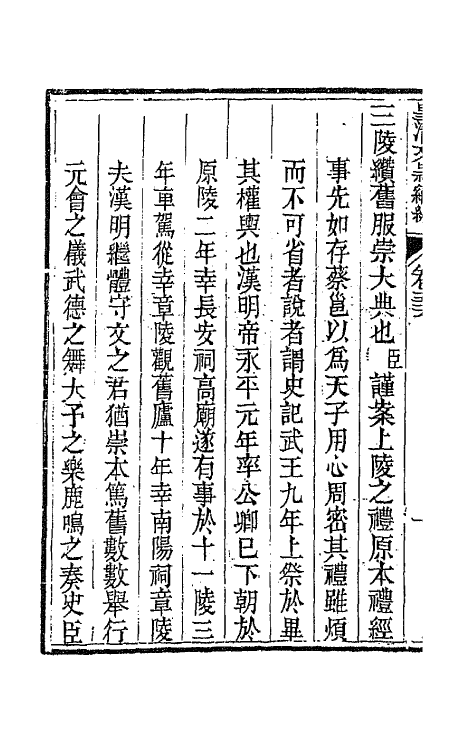 三陵纘舊服崇大典也臣謹案上陵之禮原本禮經
事先如存蔡邕以為天子用心周密其禮雖煩
而不可省者說者謂史記武王九年上祭於畢
其權輿也漢明帝永平元年率公卿已下朝於
原陵二年幸長安祠高廟遂有事於十一陵三
年車駕從幸章陵觀舊廬十年幸南陽祠章陵
夫漢明繼體守文之君猶崇本篤舊數數舉行
元會之儀武德之舞大予之樂鹿鳴之奏史臣